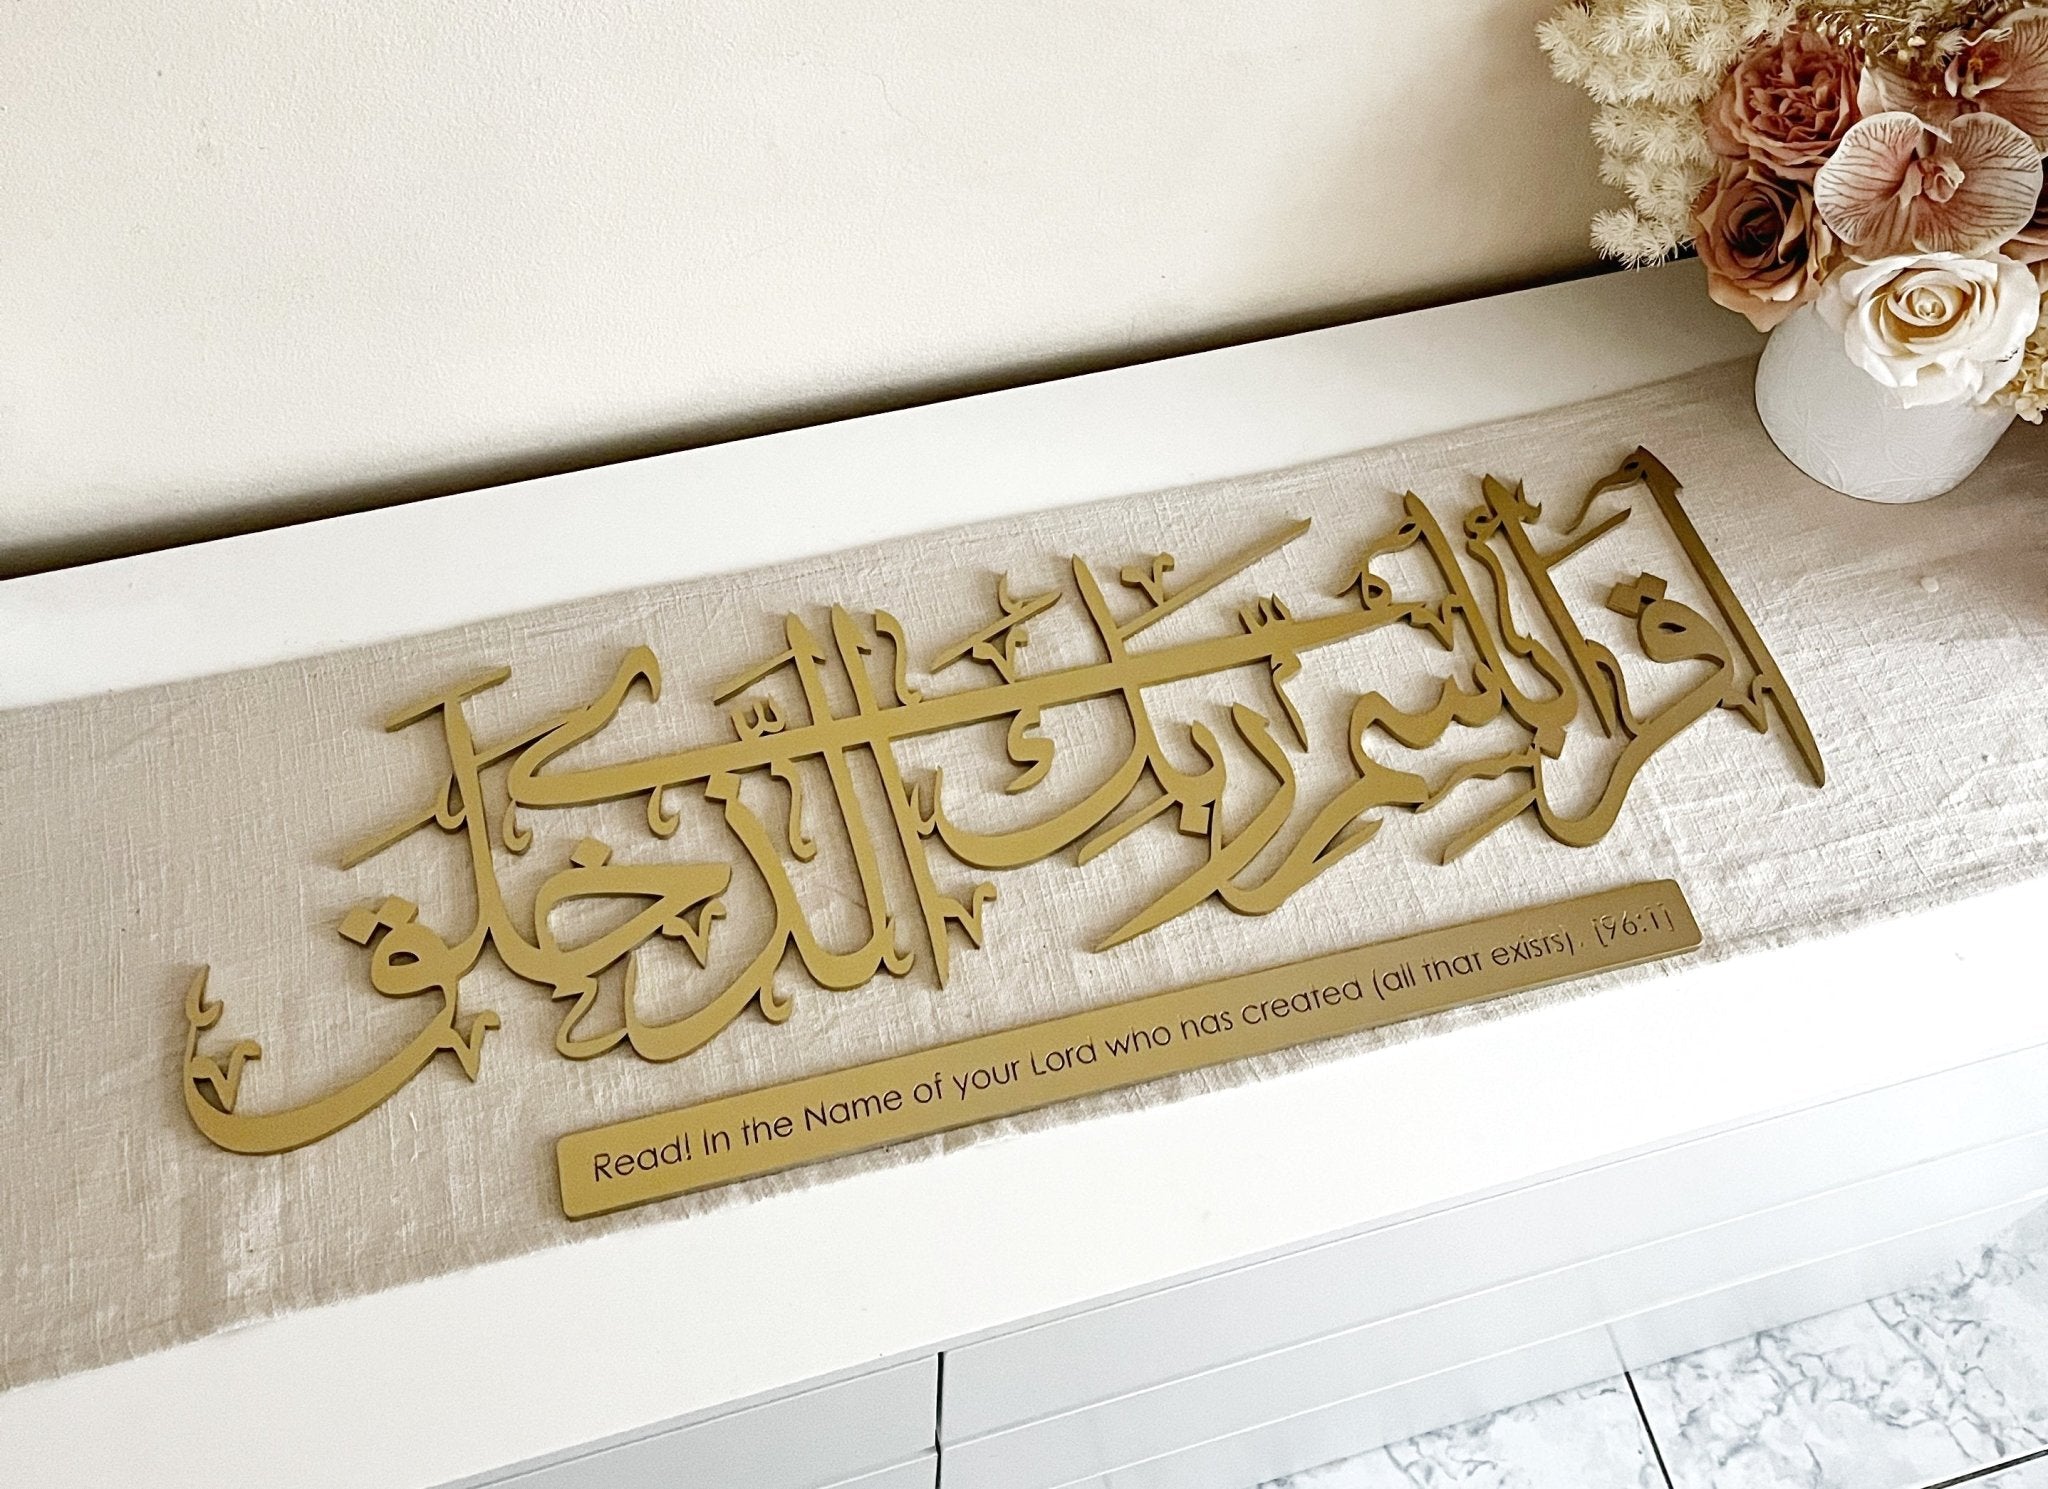 اقرأ باسم ربك الذي خلق
Read! In the Name of your Lord who has created (all that exists). [96:1]